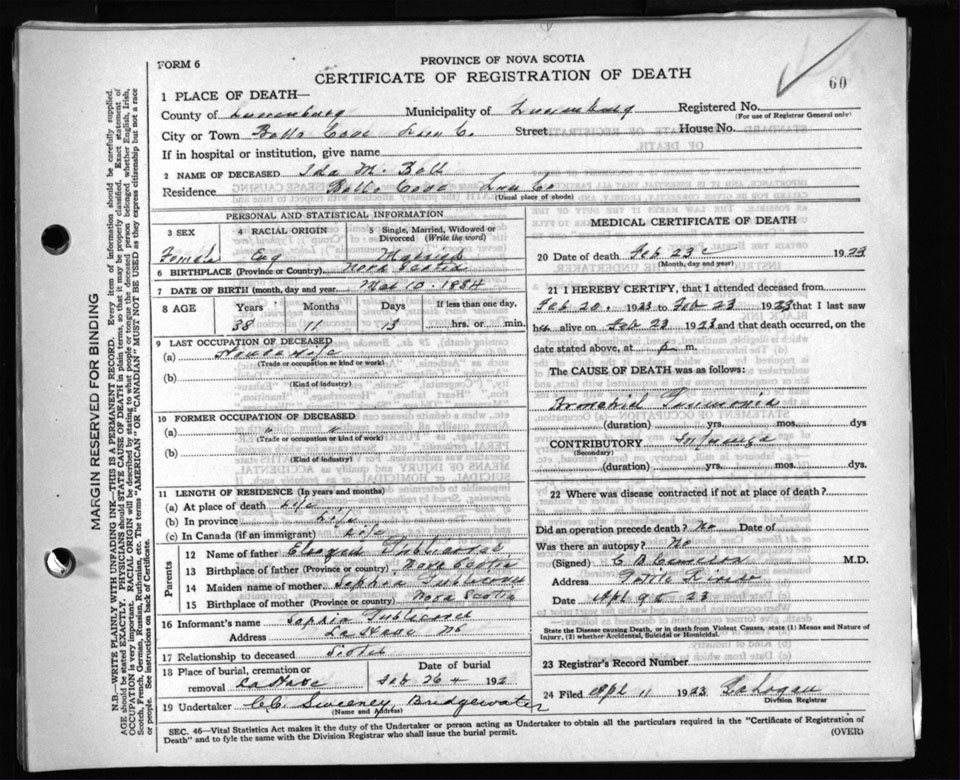 FORM 6
PROVINCE OF NOVA SCOTIA
CERTIFICATE OF REGISTRATION OF DEATH
60
1 PLACE OF DEATH—
County of Lunenburg Municipality of Lunenburg Registered No.
(For use of Registrar General only)
City or Town Cove Lun C. Street House No.
If in hospital or institution, give name
2 NAME OF DECEASED Ida M. Bell
Residence Bells Cove Lun Co
(Usual place of abode)
PERSONAL AND STATISTICAL INFORMATION
3 SEX
4 RACIAL ORIGIN
5 Single, Married, Widowed or Divorced (Write the word)
Female Eng Married
6 BIRTHPLACE (Province or Country) Nova Scotia
7 DATE OF BIRTH (month, day and year) Mar 10 - 1884
8 AGE Years Months Days If less than one day,
38 11 13 hrs. or min.
9 LAST OCCUPATION OF DECEASED
(a) Housewife
(Trade or occupation or kind of work)
(b)
(Kind of industry)
10 FORMER OCCUPATION OF DECEASED
(a) " "
(Trade or occupation or kind of work)
(b)
(Kind of industry)
11 LENGTH OF RESIDENCE (In years and months)
(a) At place of death life
(b) In province life
(c) In Canada (if an immigrant) life
Parents
12 Name of father
13 Birthplace of father (Province or country) Nova Scotia
14 Maiden name of mother Sophia
15 Birthplace of mother (Province or country) Nova Scotia
16 Informant's name Sophia
Address LaHave NS
17 Relationship to deceased
18 Place of burial, cremation or removal LaHave
Date of burial Feb 26 192
19 Undertaker C.C. Sweeney Bridgewater
(Name and Address)
MEDICAL CERTIFICATE OF DEATH
20 Date of death Feb 23 1923
(Month, day and year)
21 I HEREBY CERTIFY, that I attended deceased from
Feb 20, 1923 to Feb 23 1923 that I last saw
her alive on Feb 23 1923 and that death occurred, on the
date stated above, at p. m.
The CAUSE OF DEATH was as follows:
Bronchial Pneumonia
(duration) yrs. mos. dys.
CONTRIBUTORY Influenza
(Secondary)
(duration) yrs. mos. dys
22 Where was disease contracted if not at place of death?
Did an operation precede death? No Date of
Was there an autopsy? No
(Signed) C B M.D.
Address Petite Riviere
Date Apl 9th 23
State the Disease causing Death, or in death from Violent Causes, state (1) Means and Nature of
Injury, (2) whether Accidental, Suicidal or Homicidal.
23 Registrar's Record Number
24 Filed Apl 11 1923
Division Registrar
SEC. 46—Vital Statistics Act makes it the duty of the Undertaker or person acting as Undertaker to obtain all the particulars required in the "Certificate of Registration of
Death" and to fyle the same with the Division Registrar who shall issue the burial permit.
(OVER)
MARGIN RESERVED FOR BINDING
N.B.—WRITE PLAINLY WITH UNFADING INK—THIS IS A PERMANENT RECORD. Every item of information should be carefully supplied.
AGE should be stated EXACTLY. PHYSICIANS should STATE CAUSE OF DEATH in plain terms, so that it may be properly classified. Exact statement of
OCCUPATION is very important. RACIAL ORIGIN will be described by stating to what people or tongue the deceased person belonged whether English, Irish,
Scotch, French, German, Russian, Ruthenian, etc. The terms "AMERICAN" OR "CANADIAN" MUST NOT BE USED as they express citizenship but not a race
or people. See instructions on back of Certificate.